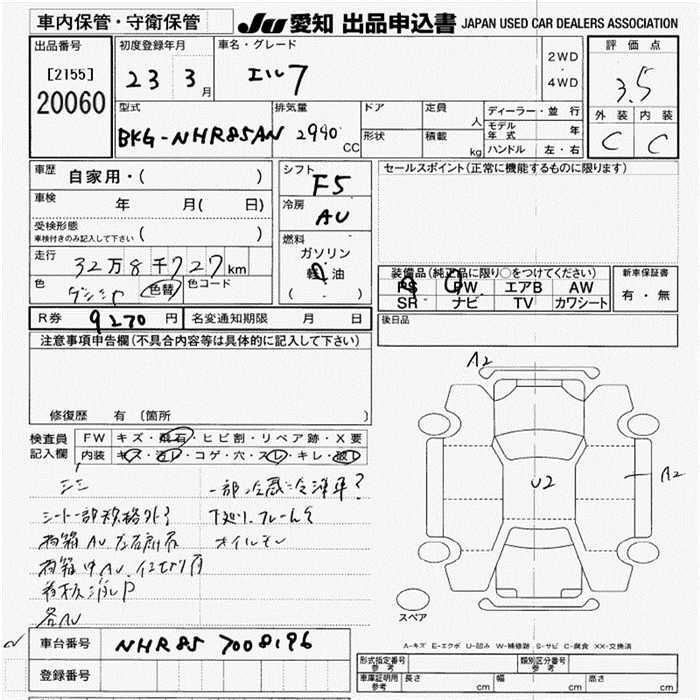 車内保管・守衛保管
JU 愛知 出品申込書 JAPAN USED CAR DEALERS ASSOCIATION
出品番号
[2155]
20060
初度登録年月
23 3月
車名・グレード
エルフ
2WD
・
4WD
評価点
3.5
外装 内装
C C
型式
BKG-NHR85AN
排気量
2990 CC
ドア
定員 人
形状
積載 kg
ディーラー・並行
モデル年式 年
ハンドル 左・右
車歴 自家用・( )
車検 年 月( 日)
受検形態
車検付きのみ記入して下さい ( )
走行
32万8千727km
色
色替
色コード
シフト
F5
冷房
AU
燃料
ガソリン
軽油
( . )
セールスポイント(正常に機能するものに限ります)
装備品(純正品に限り○をつけてください)
PS PW エアB AW
SR ナビ TV カワシート
新車保証書
有・無
R券 9270円
名変通知期限 月 日
後日品
注意事項申告欄(不具合内容等は具体的に記入して下さい)
修復歴 有 (箇所 )
検査員
記入欄
FW キズ・飛石・ヒビ割・リペア跡・X要
内装 キズ・汚レ・コゲ・穴・スレ・キレ・破レ
シート一部規格外
下廻り、フレーム
オイル
各AU
A2
U2
A2
スペア
A-キズ E-エクボ U-凹み W-補修跡 S-サビ C-腐食 XX-交換済
車台番号 NHR85 7008196
登録番号
形式指定番号
参考
類別区分番号
参考
車庫証明用
参考
長さ cm
幅 cm
高さ cm